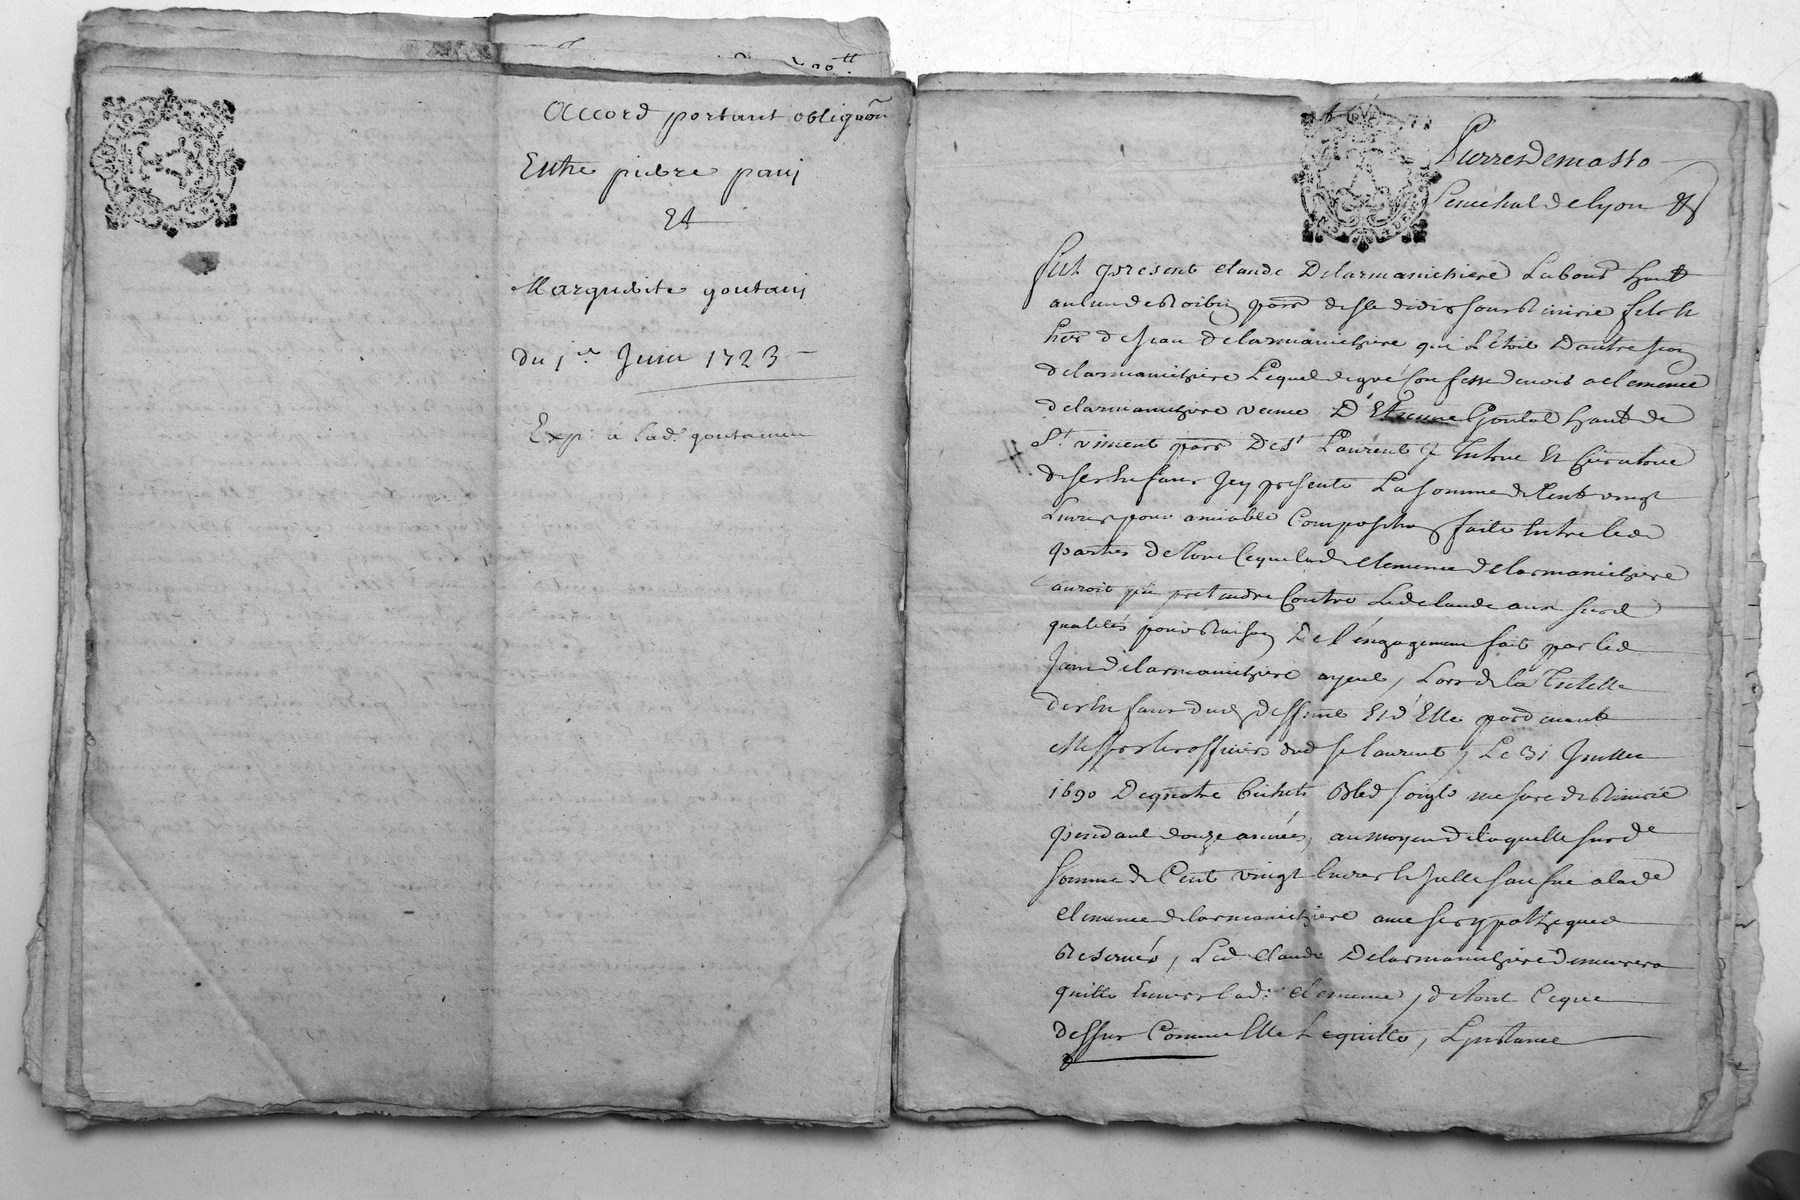 Accord portant obligaõn
Entre pierre pauj
Et
Marguerite goutauj
du 1er Juin 1723
Exp: à lad:
Pierre Demasso
senechal de lyon
fut present claude Delarmanichiere Labour habtt
parr de st didier sous Riuirie fils et
her de jean delarmanichiere qui L'étoit D'autre jean
delarmanichiere Lequel de gré Confesse deuoir a clemence
delarmanichiere veuue D'Etienne Goutal habtt de
St. vincent parr De st Laurent Tutrice Et Curatrice
de ses Enfans Jcy presente La somme de Cent vingt
Liures pour amiable Composition faite Entre les d
parties de tout Ceque lad clemence delarmanichiere
auroit pû pretendre Contre Led claude aux susd
qualités pour Raison De l'engagement fait par led
Jean delarmanichiere ayeul, Lors de la Tutelle
des Enfans dud deffunt Et d'Elle pard
par les officiers dud st laurent Le 31 Juillet
1690 De quatre bichets Bled soigle mesure de Riuirie
pendant douze années, au moyen de laquelle susde
somme de Cent vingt liures Et jcelle sur lade
clemence delarmanichiere auec ses ypothequed
Reserués, Led. claude Delarmanichiere demeurera
quitte Enuers lad: clemence, de tout Ceque
dessus Comme Elle Lequitte, L'jnstance